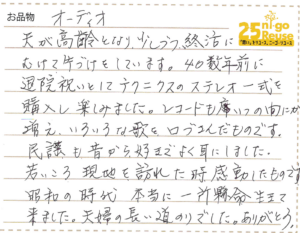 お品物 オーディオ
25 nigo Reuse
夫が高齢となり少しづつ終活に
むけて片づけをしています。40数年前に
退院祝いとしてテクニクスのステレオ一式を
購入し楽しみました。レコードも廣いつの間にか
増え、いろいろな歌を口づさんだものです。
民謡も昔から好きでよく耳にしました。
若いころ 現地を訪れた時感動したものです
昭和の時代 本当に一所懸命生きて
来ました。夫婦の長い道のりでした。ありがとう。